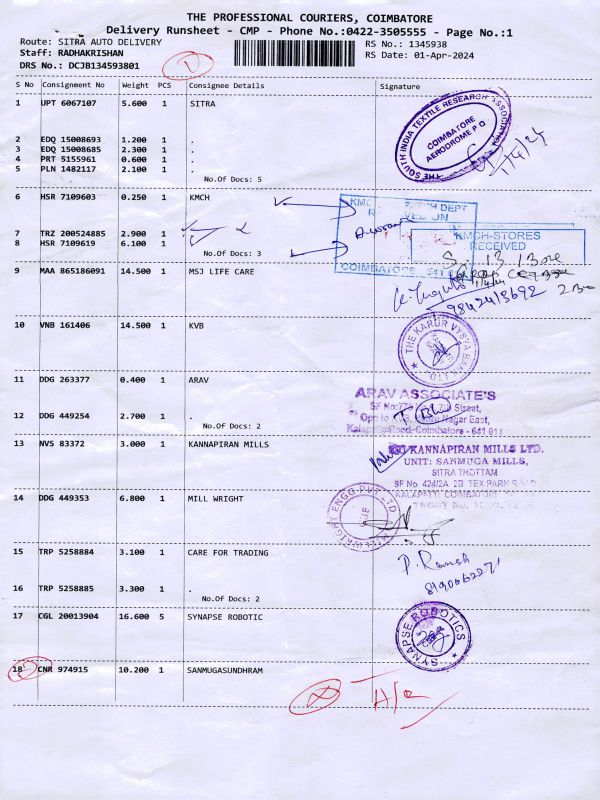 THE PROFESSIONAL COURIERS, COIMBATORE
Delivery Runsheet - CMP - Phone No.:0422-3505555 - Page No.:1
Route: SITRA AUTO DELIVERY
RS No.: 1345938
Staff: RADHAKRISHAN
RS Date: 01-Apr-2024
DRS No.: DCJB134593801
1
S No Consignment No Weight PCS Consignee Details Signature
1 UPT 6067107 5.600 1 SITRA
THE SOUTH INDIA TEXTILE RESEARCH
COIMBATORE
AERODROME P.O
1/4/24
2 EDQ 15008693 1.200 1 .
3 EDQ 15008685 2.300 1 .
4 PRT 5155961 0.600 1 .
5 PLN 1482117 2.100 1 .
No.Of Docs: 5
6 HSR 7109603 0.250 1 KMCH
DEPT
ON
COIMBATORE - 641
7 TRZ 200524885 2.900 1
8 HSR 7109619 6.100 1 .
No.Of Docs: 3
KMCH-STORES
RECEIVED
9 MAA 865186091 14.500 1 MSJ LIFE CARE
9842413692
10 VNB 161406 14.500 1 KVB
THE KARUR VYSYA BANK LTD.
11 DDG 263377 0.400 1 ARAV
ARAV ASSOCIATE'S
Street,
Nagar East,
Coimbatore - 641
12 DDG 449254 2.700 1 .
No.Of Docs: 2
13 NVS 83372 3.000 1 KANNAPIRAN MILLS
KANNAPIRAN MILLS LTD.
UNIT: SANMUGA MILLS,
SITRA THOTTAM
SF No 424/2A 2B TEX PARK
KALAPATTI COIMBATORE
14 DDG 449353 6.800 1 MILL WRIGHT
MILLWRIGHT ENGG PVT LTD
15 TRP 5258884 3.100 1 CARE FOR TRADING
P. Ramesh
8190662271
16 TRP 5258885 3.300 1 .
No.Of Docs: 2
17 CGL 20013904 16.600 5 SYNAPSE ROBOTIC
SYNAPSE ROBOTICS
18 CNR 974915 10.200 1 SANMUGASUNDHRAM